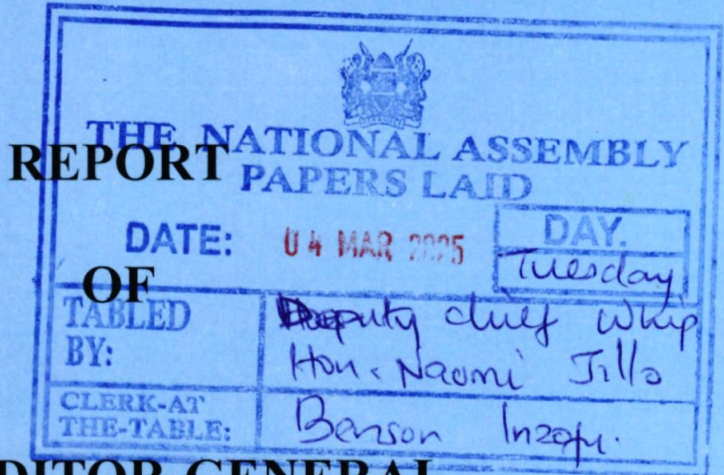 THE NATIONAL ASSEMBLY
REPORT
PAPERS LAID
DATE: 04 MAR 2025
DAY.
Tuesday
OF
TABLED BY:
Deputy chief Whip
Hon. Naomi Jillo
CLERK-AT THE-TABLE:
Benson Inzofu.
DITOR-GENERAL